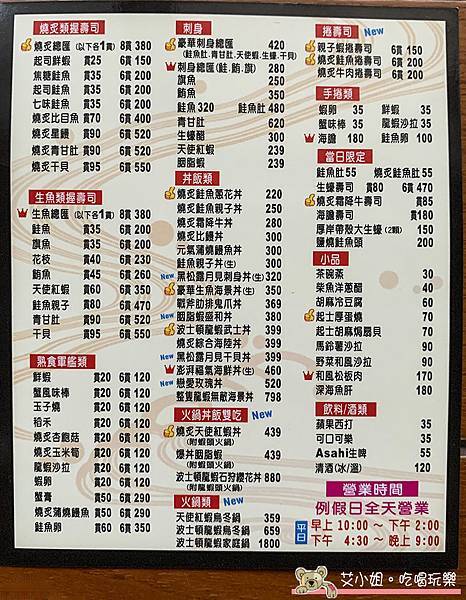 燒炙類握壽司
燒炙總匯 (以下各1貫) 8貫 380
起司鮮蝦 貫25 6貫 150
焦糖鮭魚 貫35 6貫 200
起司鮭魚 貫35 6貫 200
七味鮭魚 貫35 6貫 200
燒炙比目魚 貫70 6貫 400
燒炙星鰻 貫90 6貫 520
燒炙青甘 貫90 6貫 520
燒炙干貝 貫95 6貫 550
生魚類握壽司
生魚總匯 (以下各1貫) 8貫 380
鮭魚 貫35 6貫 200
旗魚 貫35 6貫 200
花枝 貫40 6貫 230
鮪魚 貫45 6貫 260
天使紅蝦 貫60 6貫 350
鮭魚親子 貫80 6貫 470
青甘 貫90 6貫 520
干貝 貫95 6貫 550
熟食軍艦類
鮮蝦 貫20 6貫 120
蟹風味棒 貫20 6貫 120
玉子燒 貫20 6貫 120
稻禾 貫20 6貫 120
燒炙杏鮑菇 貫20 6貫 120
燒炙玉米筍 貫20 6貫 120
龍蝦沙拉 貫20 6貫 120
蝦卵 貫20 6貫 120
蟹膏 貫50 6貫 290
燒炙蒲燒鰻魚 貫50 6貫 290
鮭魚卵 貫60 6貫 350
刺身
豪華刺身總匯 420
(鮭魚肚.青甘.天使蝦.生蠔.干貝)
刺身總匯 (鮭.鮪.旗) 280
旗魚 250
鮪魚 350
鮭魚 320 鮭魚肚 480
青甘 620
生蠔醋 300
天使紅蝦 239
胭脂蝦 239
丼飯類
燒炙鮭魚蔥花丼 220
燒炙鮭魚親子丼 250
燒炙霜降牛丼 280
燒炙比鰻丼 300
元氣蒲燒鰻魚丼 300
鮭魚親子丼(生) 300
New 黑松露月見刺身丼(生) 320
豪華生魚海景丼(生) 350
戰斧肋排鬼爪丼 369
New 胭脂蝦盛和丼 380
波士頓龍蝦武士丼 399
燒炙綜合海陸丼 399
New 黑松露月見干貝丼 399
澎湃福氣海鮮丼(生) 460
New 戀愛玫瑰丼 520
整隻龍蝦無敵海景丼 798
火鍋丼飯雙吃 New
燒炙天使紅蝦丼 439
(附蝦頭火鍋)
爆丼胭脂蝦 439
(附蝦頭火鍋)
波士頓龍蝦石狩纓花丼 880
(附龍蝦頭火鍋)
火鍋類 New
天使紅蝦烏冬鍋 359
波士頓龍蝦烏冬鍋 659
波士頓龍蝦家庭鍋 1800
捲壽司 New
親子蝦捲壽司 6貫 150
燒炙鮭魚捲壽司 6貫 200
燒炙牛肉捲壽司 6貫 200
手捲類
蝦卵 35 鮮蝦 35
蟹味棒 35 龍蝦沙拉 35
海膽 180 鮭魚卵 100
當日限定
鮭魚肚 55 燒炙鮭魚肚 55
生蠔壽司 貫80 6貫 470
燒炙霜降牛壽司 貫85
海膽壽司 貫180
厚岸帶殼大生蠔 (2顆) 150
鹽燒鮭魚頭 200
小品
茶碗蒸 30
柴魚洋蔥醋 40
胡麻冷豆腐 60
起士厚蛋燒 70
起士胡麻焗扇貝 70
馬鈴薯沙拉 90
野菜和風沙拉 90
和風松板肉 170
深海魚肝 180
飲料/酒類
蘋果西打 30
可口可樂 30
Asahi生啤 55
清酒(冰/溫) 120
營業時間
例假日全天營業
平日 早上 10:00 ~ 下午 2:00
下午 4:30 ~ 晚上 9:00
艾小姐。吃喝玩樂